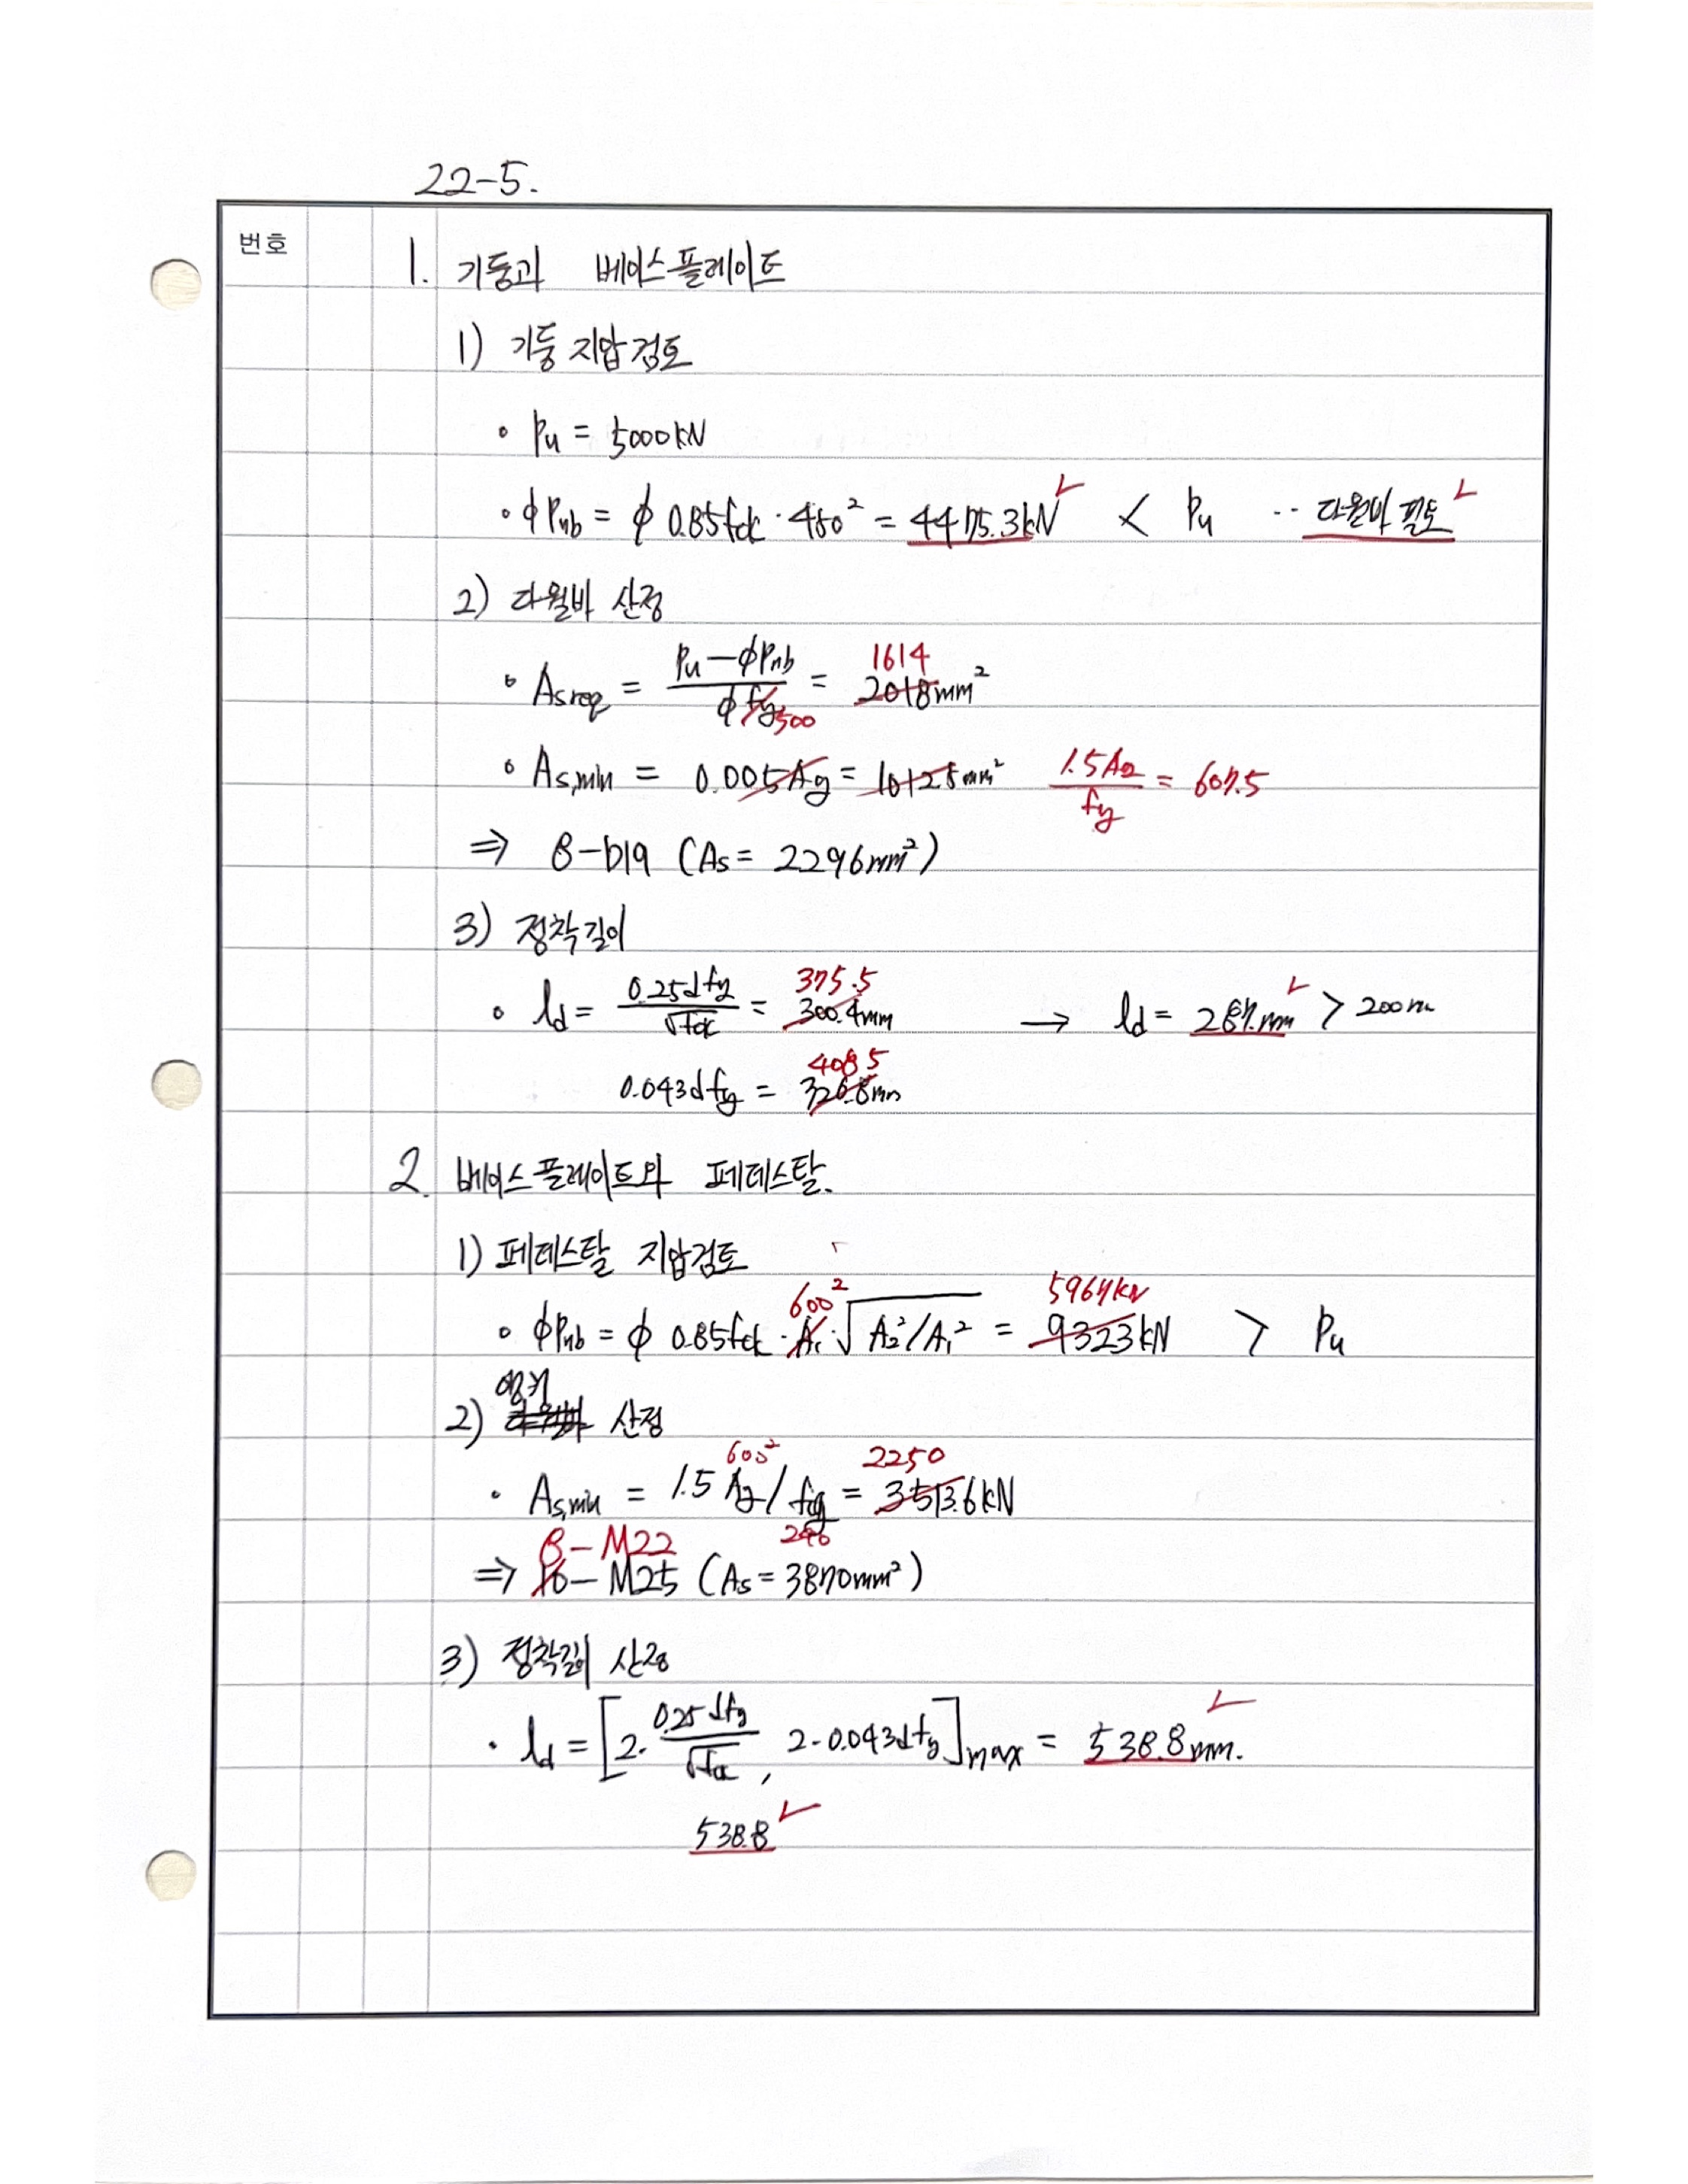 22-5.
번호
1. 기둥과 베이스플레이트
1) 기둥 지압검토
• Pu = 5000kN
• ϕPnb = ϕ 0.85fck · 450² = 4475.3kN < Pu ·· 다월바 필요
2) 다월바 산정
1614
• Asreq = (Pu-ϕPnb)/(ϕ fy) = 2018mm²
500
• As,min = 0.005Ag = 10125mm² 1.5Ag/fy = 607.5
⇒ 8-D19 (As = 2296mm²)
3) 정착길이
375.5
• ld = 0.25dfy/√fck = 300.4mm → ld = 287.mm > 200m
408.5
0.043dfy = 326.8mm
2. 베이스플레이트와 페데스탈.
1) 페데스탈 지압검토
600² 5967kN
• ϕPnb = ϕ 0.85fck · A₁ · √A₂²/A₁² = 9323kN > Pu
앵커
2) 산정
600² 2250
• As,min = 1.5 Ag/fy = 3513.6kN
240
8-M22
⇒ 10-M25 (As = 3870mm²)
3) 정착길이 산정
• ld = [2· 0.25dfy/√fck , 2-0.043dfy]max = 538.8mm.
538.8